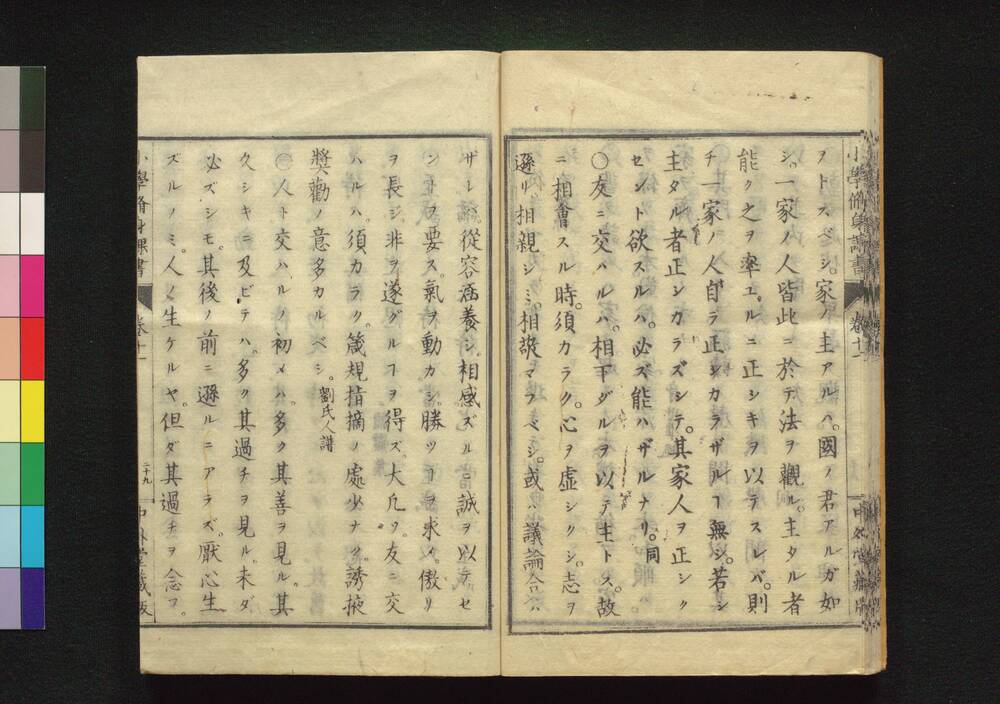 小學脩身課書 卷十一 中外堂藏版
ヲトスベシ。家ノ主アルハ。國ノ君アルガ如
シ。一家ノ人皆此ニ於テ法ヲ觀ル。主タル者
能ク之ヲ率ユルニ正シキヲ以テスレバ。則
チ一家ノ人自ラ正シカラザルヿ無シ。若シ
主タル者正シカラズシテ。其家人ヲ正シク
セント欲スルハ。必ズ能ハザルナリ。同
〇友ニ交ハルハ。相下ダルヲ以テ主トス。故
ニ相會スル時。須カラク。心ヲ虚シクシ。志ヲ
遜リ。相親シミ。相讓マフベシ。或ハ議論合ハ
ザレバ。從容涵養シ。相感ズルニ誠ヲ以テセ
ンヿヲ要ス。氣ヲ動カシ。勝ツヿヲ求メ。傲リ
ヲ長ジ。非ヲ遂グルヿヲ得ズ。大凡ソ。友ニ交
ハルハ。須カラク。箴規指摘ノ處少ナク。誘掖
奬勸ノ意多カルベシ。劉氏人譜
〇人ト交ハルノ初メハ。多ク其善ヲ見ル。其
久シキニ及ビテハ。多ク其過チヲ見ル。未ダ
必ズシモ。其後ノ前ニ遜ルニアラズ。厭心生
ズルノミ。人ノ生ケルヤ。但ダ其過チヲ念フ。
小學脩身課書 卷十一 二十九 中外堂藏版